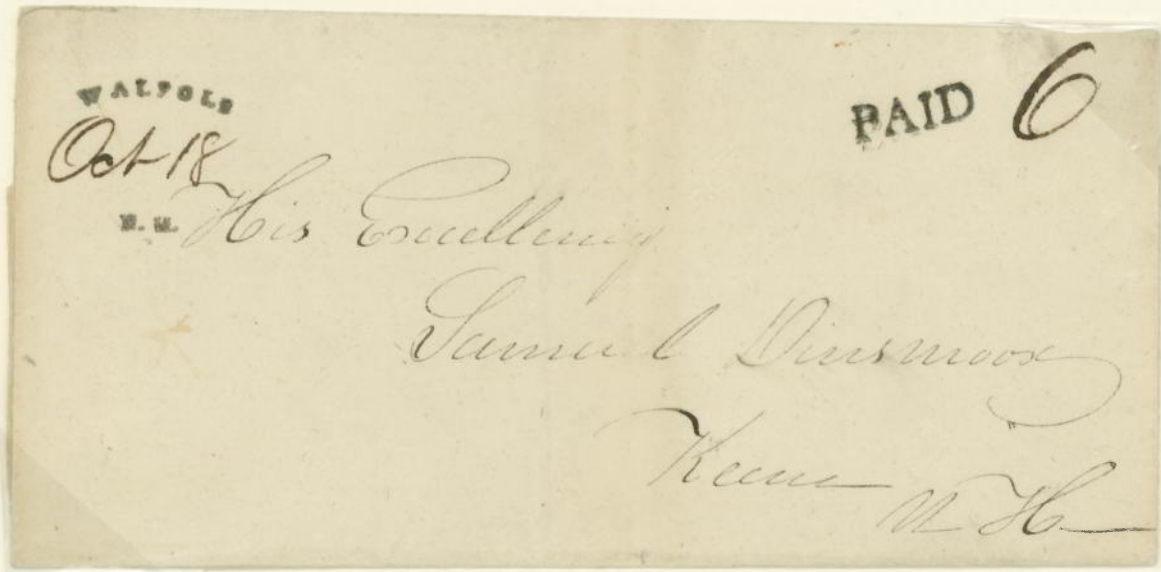 WALPOLE
PAID 6
Oct 18
N. H.
His Excellency
Samuel Dinsmoor
Keene
N H